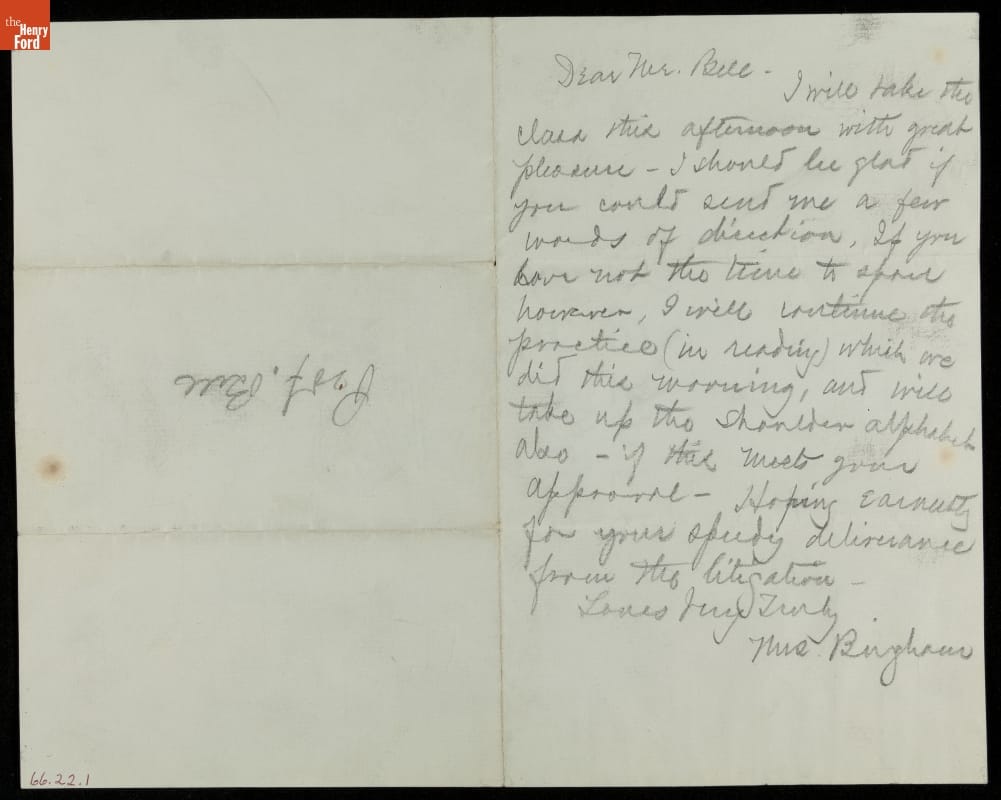 the
Henry
Ford
Dear Mr. Bell -
I will take the
class this afternoon with great
pleasure - I should be glad if
you could send me a few
words of direction, If you
have not the time to spare
however, I will continue the
practice (in reading) which we
did this morning, and will
take up the shoulder alphabet
also - if this meets your
approval - Hoping earnestly
for your speedy deliverance
from the litigation -
Yours Very Truly
Mrs. Bingham
Prof. Bell
66.22.1